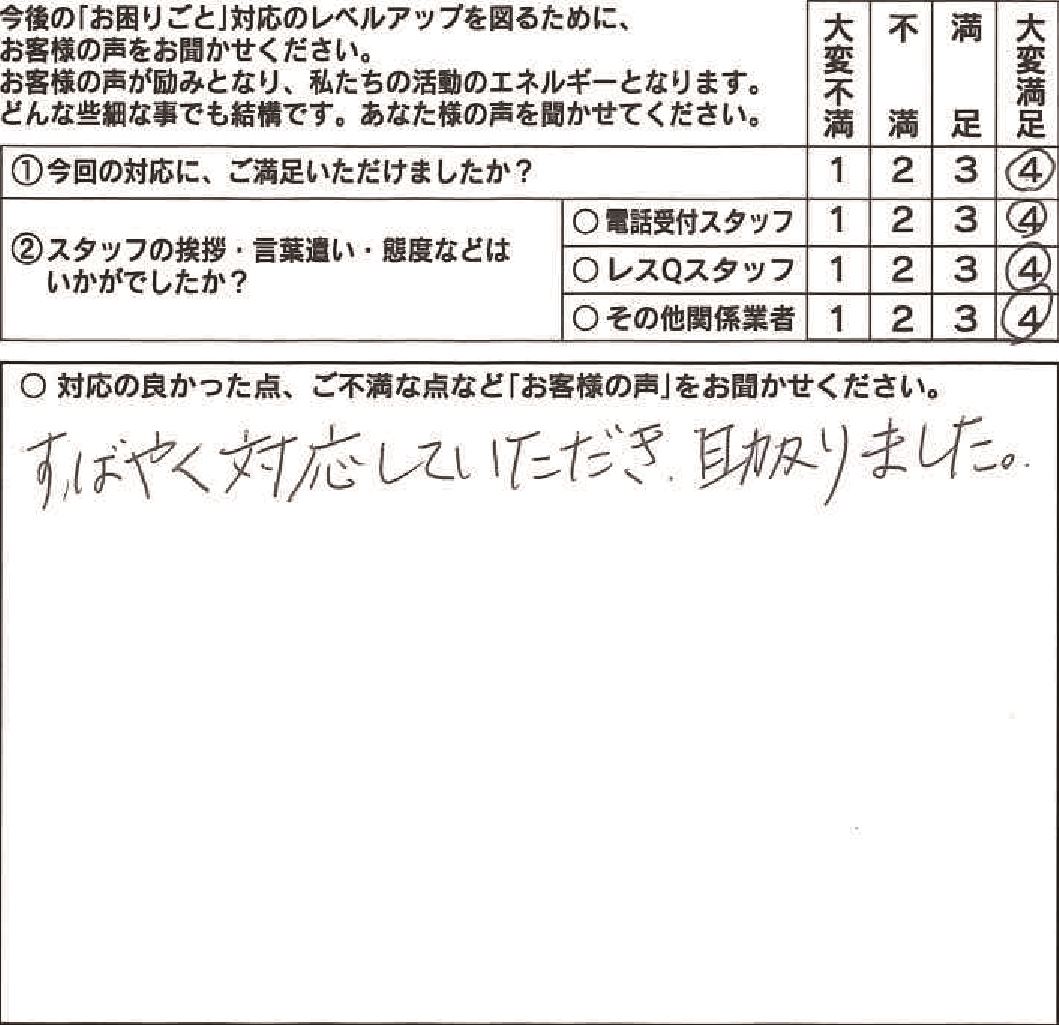 今後の｢お困りごと｣対応のレベルアップを図るために、
お客様の声をお聞かせください。
お客様の声が励みとなり、私たちの活動のエネルギーとなります。
どんな些細な事でも結構です。あなた様の声を聞かせてください。
大変不満 不満 満足 大変満足
①今回の対応に、ご満足いただけましたか？ 1 2 3 4
②スタッフの挨拶・言葉遣い・態度などは
いかがでしたか？
○電話受付スタッフ 1 2 3 4
○レスQスタッフ 1 2 3 4
○その他関係業者 1 2 3 4
○ 対応の良かった点、ご不満な点など｢お客様の声｣をお聞かせください。
すばやく対応していただき、助かりました。